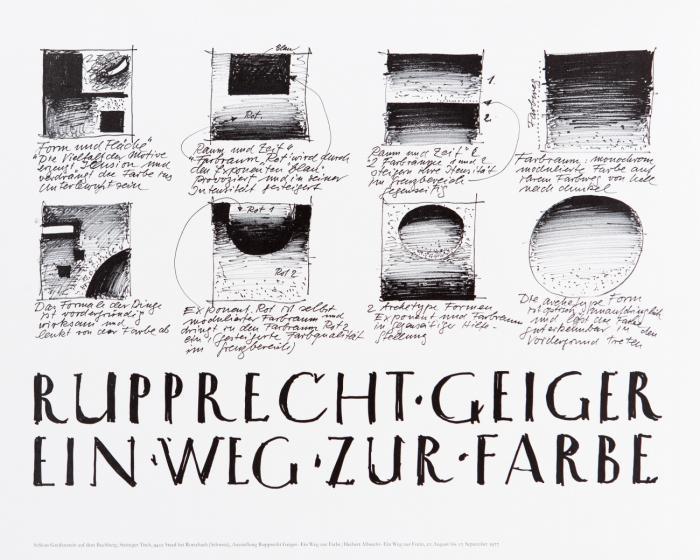 Blau
Rot
1
2
Farbweg
Form und Fläche"
"Die Vielfalt der Motive
erzeugt Illusion und
verdrängt die Farbe ins
Unterbewußtsein
Raum und Zeit" a
"Farbraum „Rot" wird durch
den Exponenten „Blau"
provoziert und in seiner
Intensität gesteigert
Raum und Zeit" b
2 Farbränge 1 und 2
steigern ihre Intensität
im Grenzbereich
gegenseitig
Farbraum: monochrom
modulierte Farbe auf
ihrem Farbweg von hell
nach dunkel
Rot 1
Rot 2
Das Formale der Dinge
ist vordergründig
wirksam und
lenkt von der Farbe ab
Exponent Rot ist selbst
modulierter Farbraum und
dringt in den Farbraum Rot 2
ein (gesteigerte Farbqualität
im Grenzbereich)
2 Archetype Formen
Exponent und Farbraum
in gegenseitiger Hilfe-
stellung
Die archetype Form
ist optisch
und läßt die Farbe
in den
Vordergrund treten
RUPPRECHT·GEIGER
EIN·WEG·ZUR·FARBE
Schloss Greifenstein auf dem Buchberg, Steiniger Tisch, 9422 Staad bei Rorschach (Schweiz), Ausstellung Rupprecht Geiger · Ein Weg zur Farbe / Herbert Albrecht · Ein Weg zur Form, 27. August bis 17. September 1977